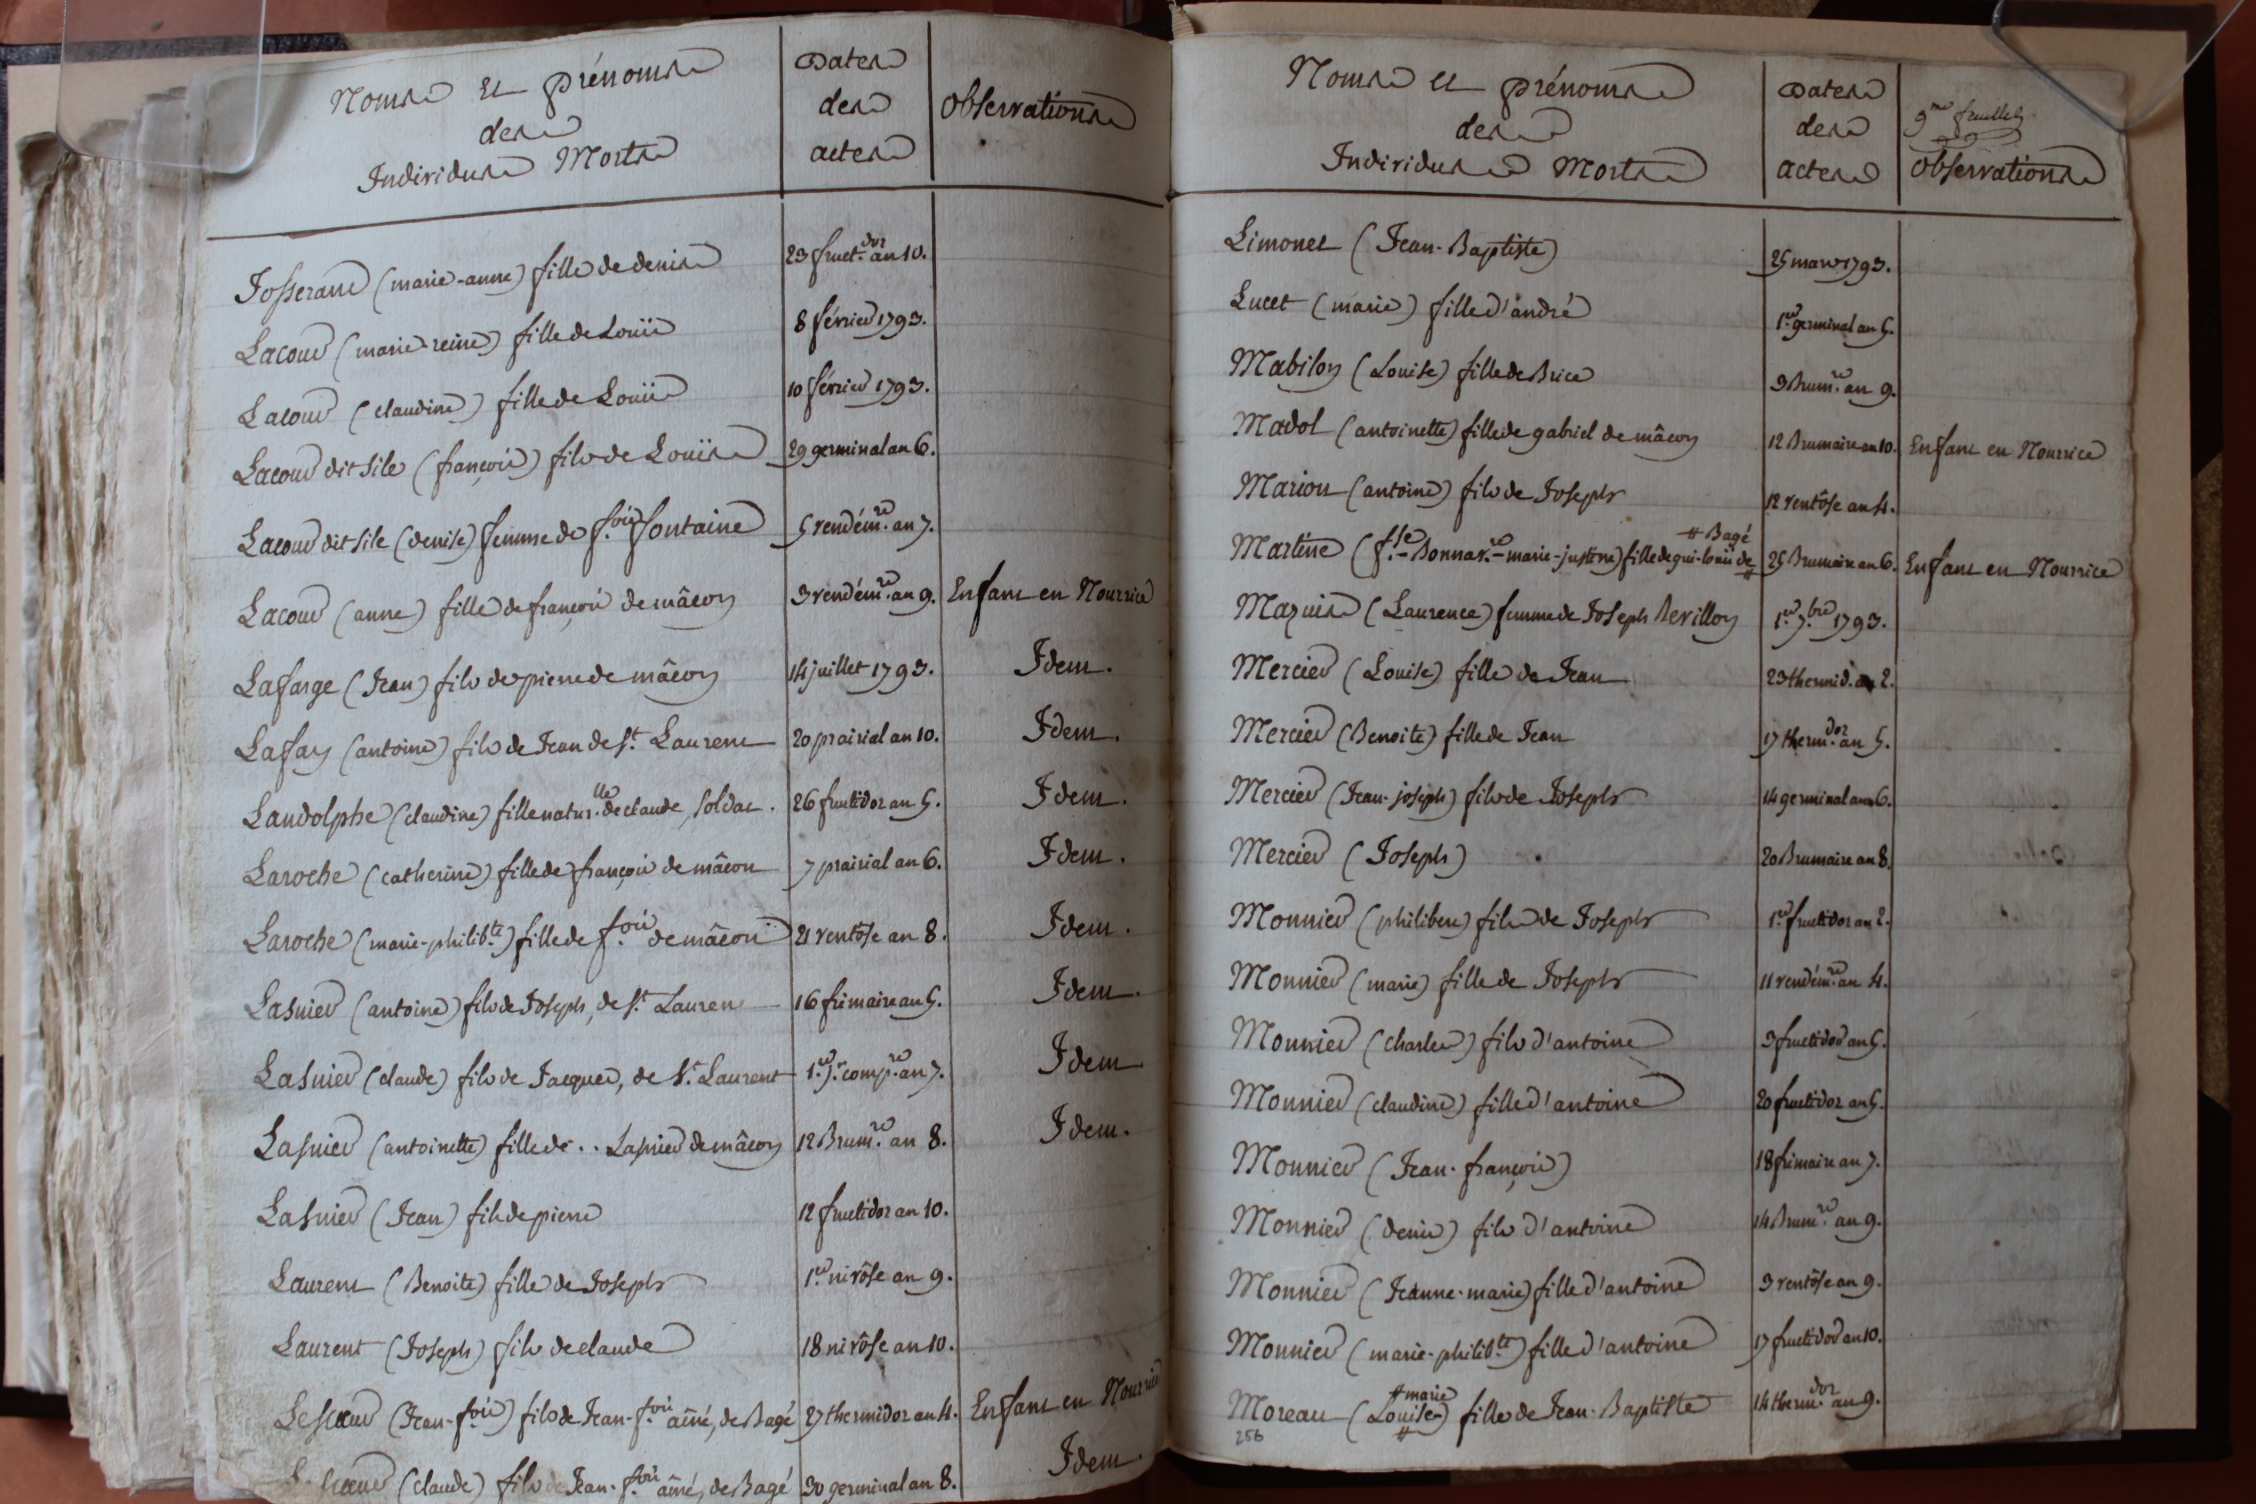 Noms et prénoms
des
Individus Morts
Dates
des
actes
Observations
Josserand (marie-anne) fille de denis 23 fruct.dor an 10.
Lacour (marie-reine) fille de Louis 8 février 1793.
Lacour (claudine) fille de Louis 10 février 1793.
Lacour dit sile (françois) fils de Louis 29 germinal an 6.
Lacour dit sile (denise) femme de f.ois fontaine 5 vendém.re an 7.
Lacour (anne) fille de françois de mâcon 3 vendém.re an 9. Enfant en Nourrice
Lafarge (Jean) fils de pierre de mâcon 14 juillet 1793. Idem.
Laffay (antoine) fils de Jean de St. Laurent 20 prairial an 10. Idem.
Landolphe (claudine) fille natur.lle de claude, soldat. 26 fructidor an 5. Idem.
Laroche (catherine) fille de françois de mâcon 7 prairial an 6. Idem.
Laroche (marie-philib.te) fille de f.ois de mâcon 21 ventôse an 8. Idem.
Lasnier (antoine) fils de Joseph, de St. Laurent 16 frimaire an 5. Idem.
Lasnier (claude) fils de Jacques, de St. Laurent 1.er j.r comp.re an 7. Idem
Lasnier (antoinette) fille de .. Lasnier de mâcon 12 Brum.re an 8. Idem.
Lasnier (Jean) fils de pierre 12 fructidor an 10.
Laurent (Benoite) fille de Joseph 1.er nivôse an 9.
Laurent (Joseph) fils de claude 18 nivôse an 10.
Lescœur (Jean-f.ois) fils de Jean-f.ois aîné, de Bagé 27 thermidor an 4. Enfant en Nourrice
Lescœur (claude) fils de Jean-f.ois aîné, de Bagé 30 germinal an 8. Idem.
Noms et prénoms
des
Individus Morts
Dates
des
actes
9.me feuillet
Observations
Limonet (Jean-Baptiste) 25 mars 1793.
Lucet (marie) fille d'andré 1.er germinal an 5.
Mabilon (Louise) fille de Brice 9 Brum.re an 9.
Madol (antoinette) fille de gabriel de mâcon 12 Brumaire an 10. Enfant en Nourrice
Marion (antoine) fils de Joseph 12 ventôse an 4.
# Bagé
Martine (f.se-Bonnav.re-marie-justine) fille de gui-louis de # 25 Brumaire an 6. Enfant en Nourrice
Mazuis (Laurence) femme de Joseph Revillon 1.er 7.bre 1793.
Mercier (Louise) fille de Jean 23 thermid. an 2.
Mercier (Benoite) fille de Jean 17 therm.dor an 5.
Mercier (Jean-joseph) fils de Joseph 14 germinal an 6.
Mercier (Joseph) 20 Brumaire an 8.
Monnier (philibert) fils de Joseph 1.er fructidor an 2.
Monnier (marie) fille de Joseph 11 vendém.re an 4.
Monnier (charles) fils d'antoine 3 fructidor an 5.
Monnier (claudine) fille d'antoine 20 fructidor an 5.
Monnier (Jean-françois) 18 frimaire an 7.
Monnier (denis) fils d'antoine 14 Brum.re an 9.
Monnier (Jeanne-marie) fille d'antoine 3 ventôse an 9.
Monnier (marie-philib.te) fille d'antoine 17 fructidor an 10.
# marie
Moreau (Louise-#) fille de Jean-Baptiste 14 therm.dor an 9.
256